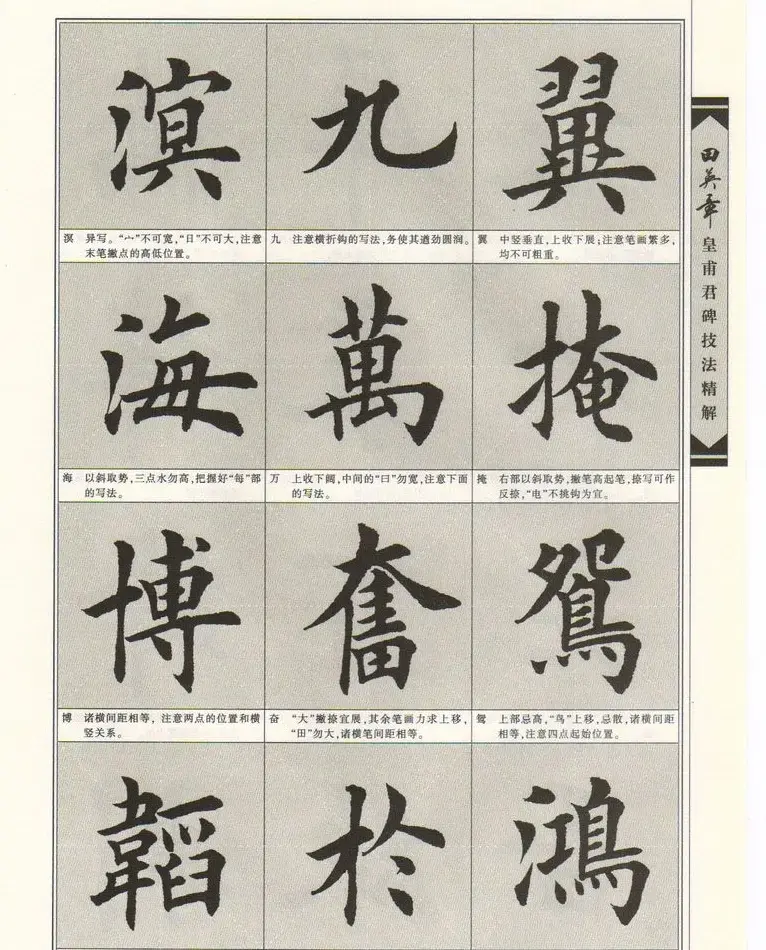 溟 九 翼
溟 异写。“宀”不可宽,“日”不可大,注意
末笔撇点的高低位置。
九 注意横折钩的写法,务使其遒劲圆润。
翼 中竖垂直,上收下展;注意笔画繁多,
均不可粗重。
海 萬 掩
海 以斜取势,三点水勿高,把握好“每”部
的写法。
万 上收下阔,中间的“曰”勿宽,注意下面
的写法。
掩 右部以斜取势,撇笔高起笔,捺写可作
反捺,“电”不挑钩为宜。
博 奮 鴛
博 诸横间距相等,注意两点的位置和横
竖关系。
奋 “大”撇捺宜展,其余笔画力求上移,
“田”勿大,诸横笔间距相等。
鸳 上部忌高,“鸟”上移,忌散,诸横间距
相等,注意四点起始位置。
韜 於 鴻
田英章
皇甫君碑技法精解